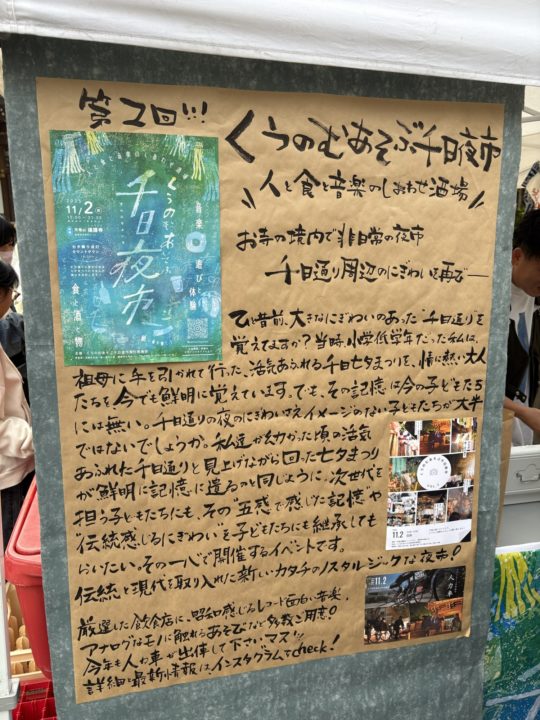 第2回!!!
くうのむあそぶ千日夜市
人と食と音楽のしあわせ酒場
お寺の境内で非日常の夜市
千日通り周辺のにぎわいを再び──
ひと昔前、大きなにぎわいのあった"千日通り"を
覚えてますか?当時小学低学年だった私は、
祖母に手を引かれて行った、活気あふれる千日七夕まつりを、情に熱い大人
たちを、今でも鮮明に覚えています。でも、その記憶は今の子どもたち
には無い。千日通りの夜のにぎわいさえイメージのない子どもたちが大半
ではないでしょうか。私達が幼かった頃の活気
あふれた千日通りと見上げながら回った七夕まつり
が鮮明に記憶に遺るのと同じように、次世代を
担う子どもたちにも、その"五感で感じた記憶や
"伝統感じるにぎわい"を子どもたちにも継承しても
らいたい。その一心で開催するイベントです。
伝統と現代を取り入れた新しいカタチのノスタルジックな夜市!
厳選した飲食店に、昭和感じるレコード面白い音楽、
アナログなモノに触れるあそびなど多数ご用意!
今年も人力車が出陣して下さいマス
詳細・最新情報は、インスタグラムでcheck!
くうのむあそぶ
千日夜市
2025
11/2
音楽
遊びと体験
食と酒と物
11.2
11.2
人力車